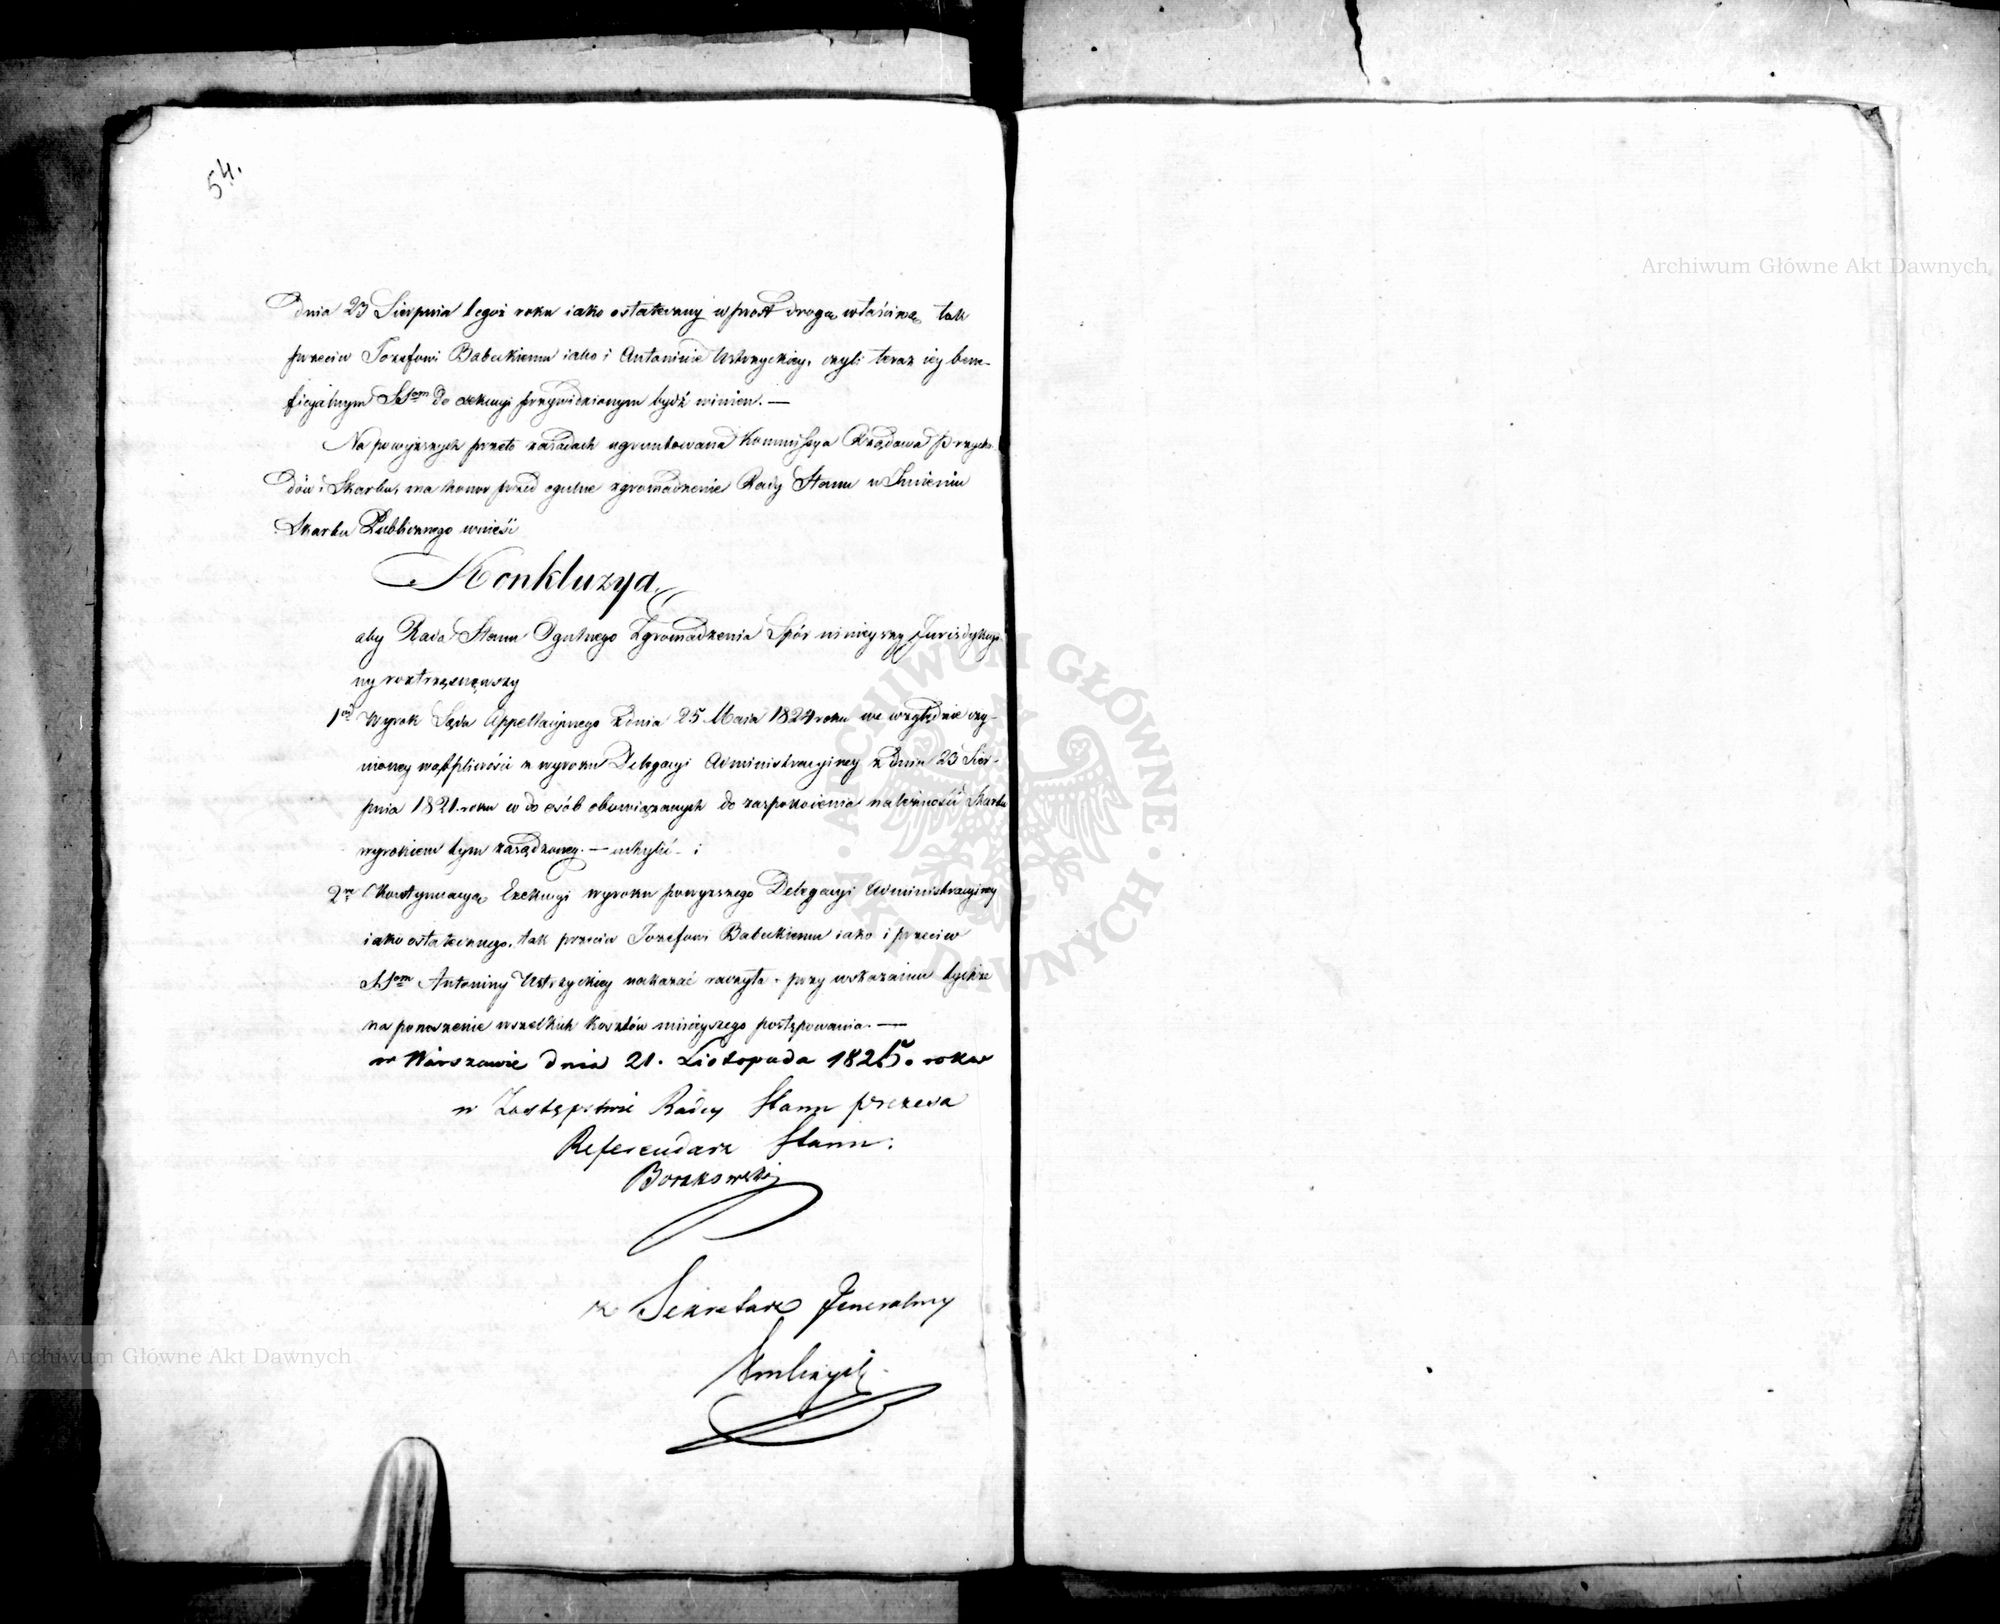 54.
Dnia 23 Sierpnia tegoż roku iako ostateczny wprost drogą właściwą tak
przeciw Jozefowi Babeckiemu iako i Antoninie Ustrzyckiey, czyli teraz iey bene-
ficyalnym SSom do exekucyi przywiedzionym bydź winien. —
Na powyższych przeto zasadach ugruntowana Kommissya Rządowa Przycho-
dów i Skarbu, ma honor przed ogulne zgromadzenie Rady Stanu w Imieniu
Skarbu Publicznego wnieść
Konkluzyą,
aby Rada Stanu Ogulnego Zgromadzenia Spór ninieyszy Jurisdykcyi-
ny roztrząsnąwszy
1od Wyrok Sądu Appellacyinego z dnia 25 Maia 1824 roku we względzie czy-
nioney wątpliwości z wyroku Delegacyi Administracyiney z dnia 23 Sier-
pnia 1821. roku co do osób obowiązanych do zaspokoienia należności Skarbu
wyrokiem tym zasądzoney. — uchylić. i
2re Kontynuacyą Exekucyi wyroku powyższego Delegacyi Administracyiney
iako ostatecznego, tak przeciw Jozefowi Babeckiemu iako i przeciw
SSom Antoniny Ustrzyckiey nakazać raczyła. przy wskazaniu tychże
na ponoszenie wszelkich kosztów ninieyszego postępowania. —
w Warszawie dnia 21. Listopada 1825. roku
w Zastępstwie Radcy Stanu prezesa
Referendarz Stanu:
Borakowski
Sekretarz Jeneralny
Archiwum Główne Akt Dawnych
Archiwum Główne Akt Dawnych
· ARCHIWUM GŁÓWNE · AKT DAWNYCH